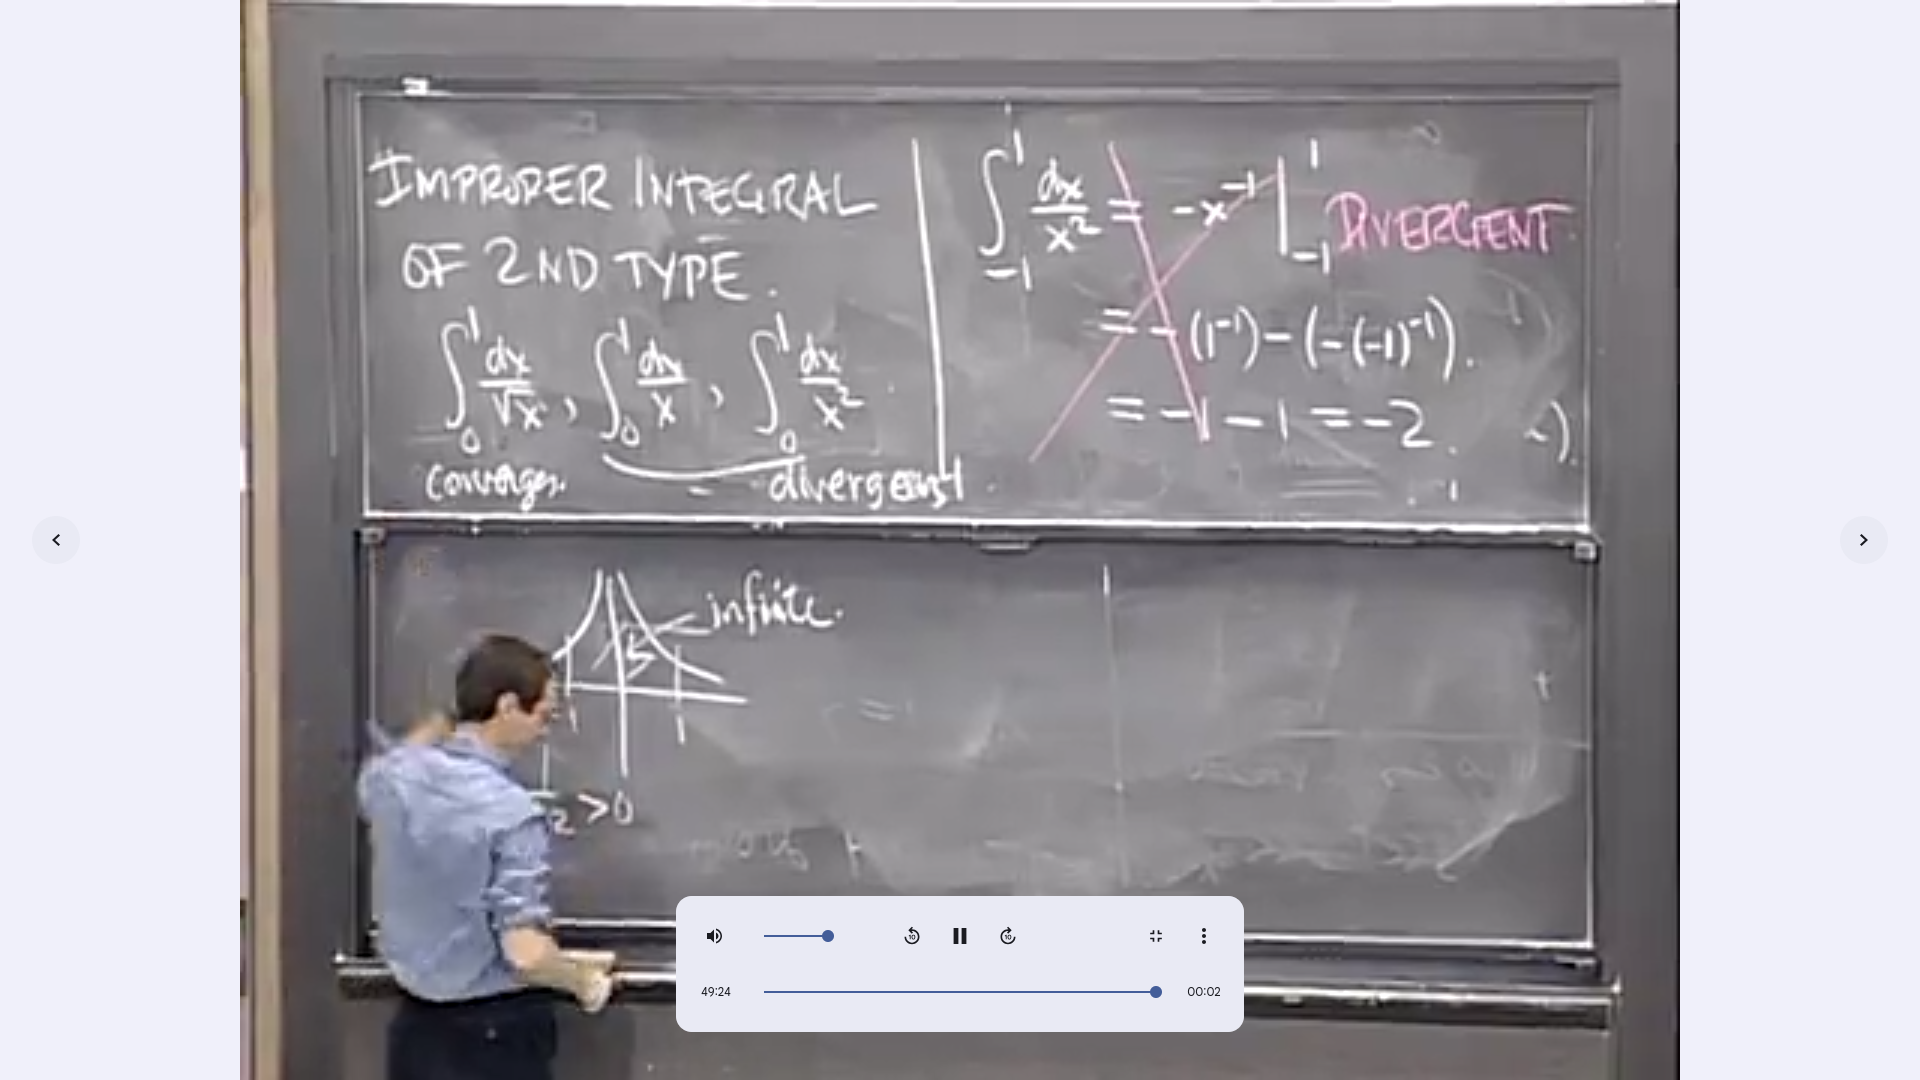 IMPROPER INTEGRAL
OF 2ND TYPE.
∫₀¹ dx/√x, ∫₀¹ dx/x, ∫₀¹ dx/x²
converges. divergent
∫₋₁¹ dx/x² = -x⁻¹ |₋₁¹ DIVERGENT
= -(1⁻¹) - (-(-1)⁻¹).
= -1 - 1 = -2.
infinite.
1
2 > 0
49:24
00:02